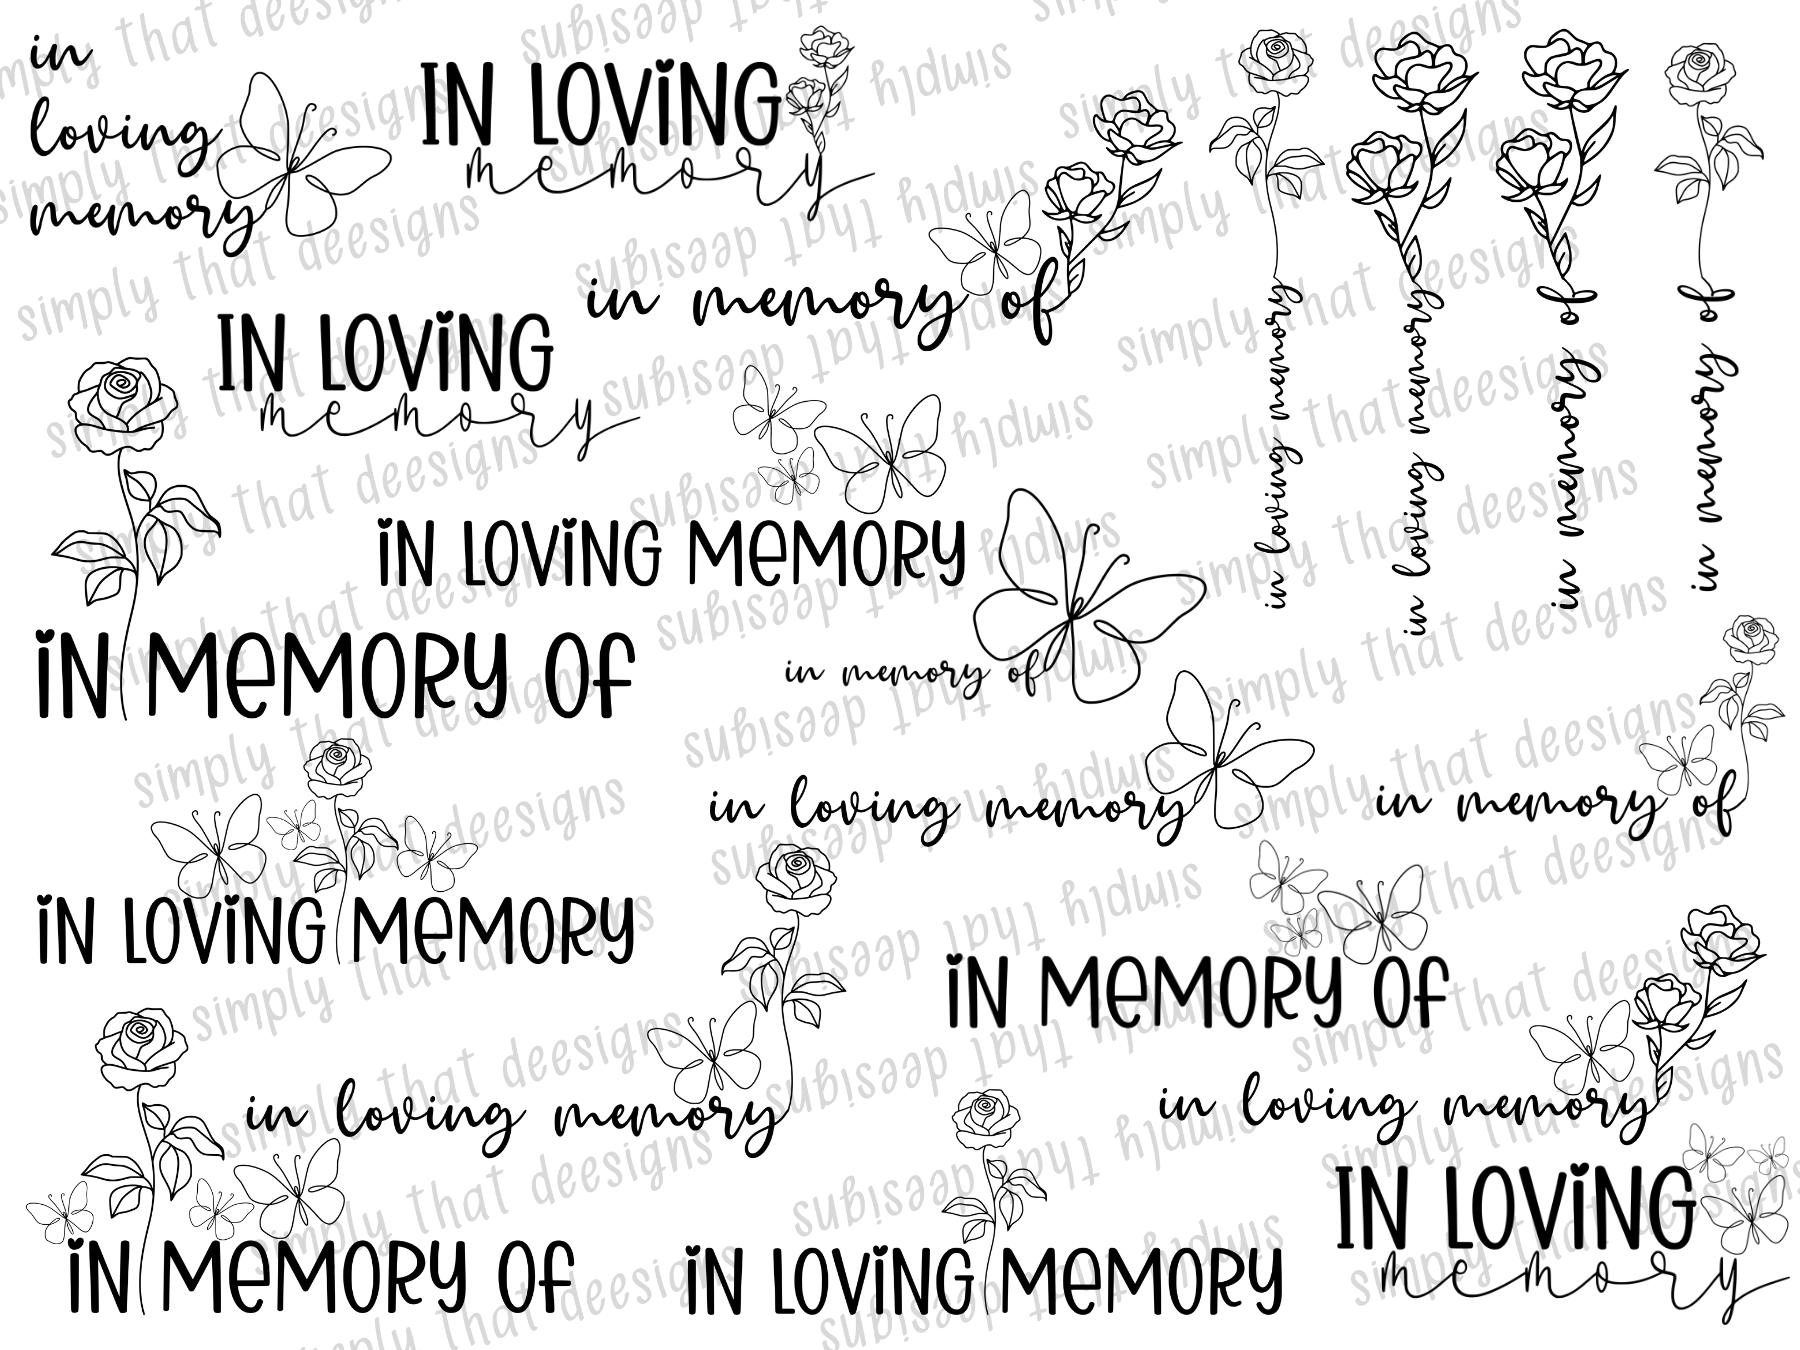 in
loving
memory
IN LOVING
memory
in memory of
IN LOVING
memory
IN LOVING MEMORY
IN MEMORY OF
in memory of
in loving memory
in memory of
IN LOVING MEMORY
IN MEMORY OF
in loving memory
in loving memory
IN MEMORY OF
IN LOVING MEMORY
IN LOVING
memory
in loving memory
in loving memory
in memory of
in memory of
simply that deesigns